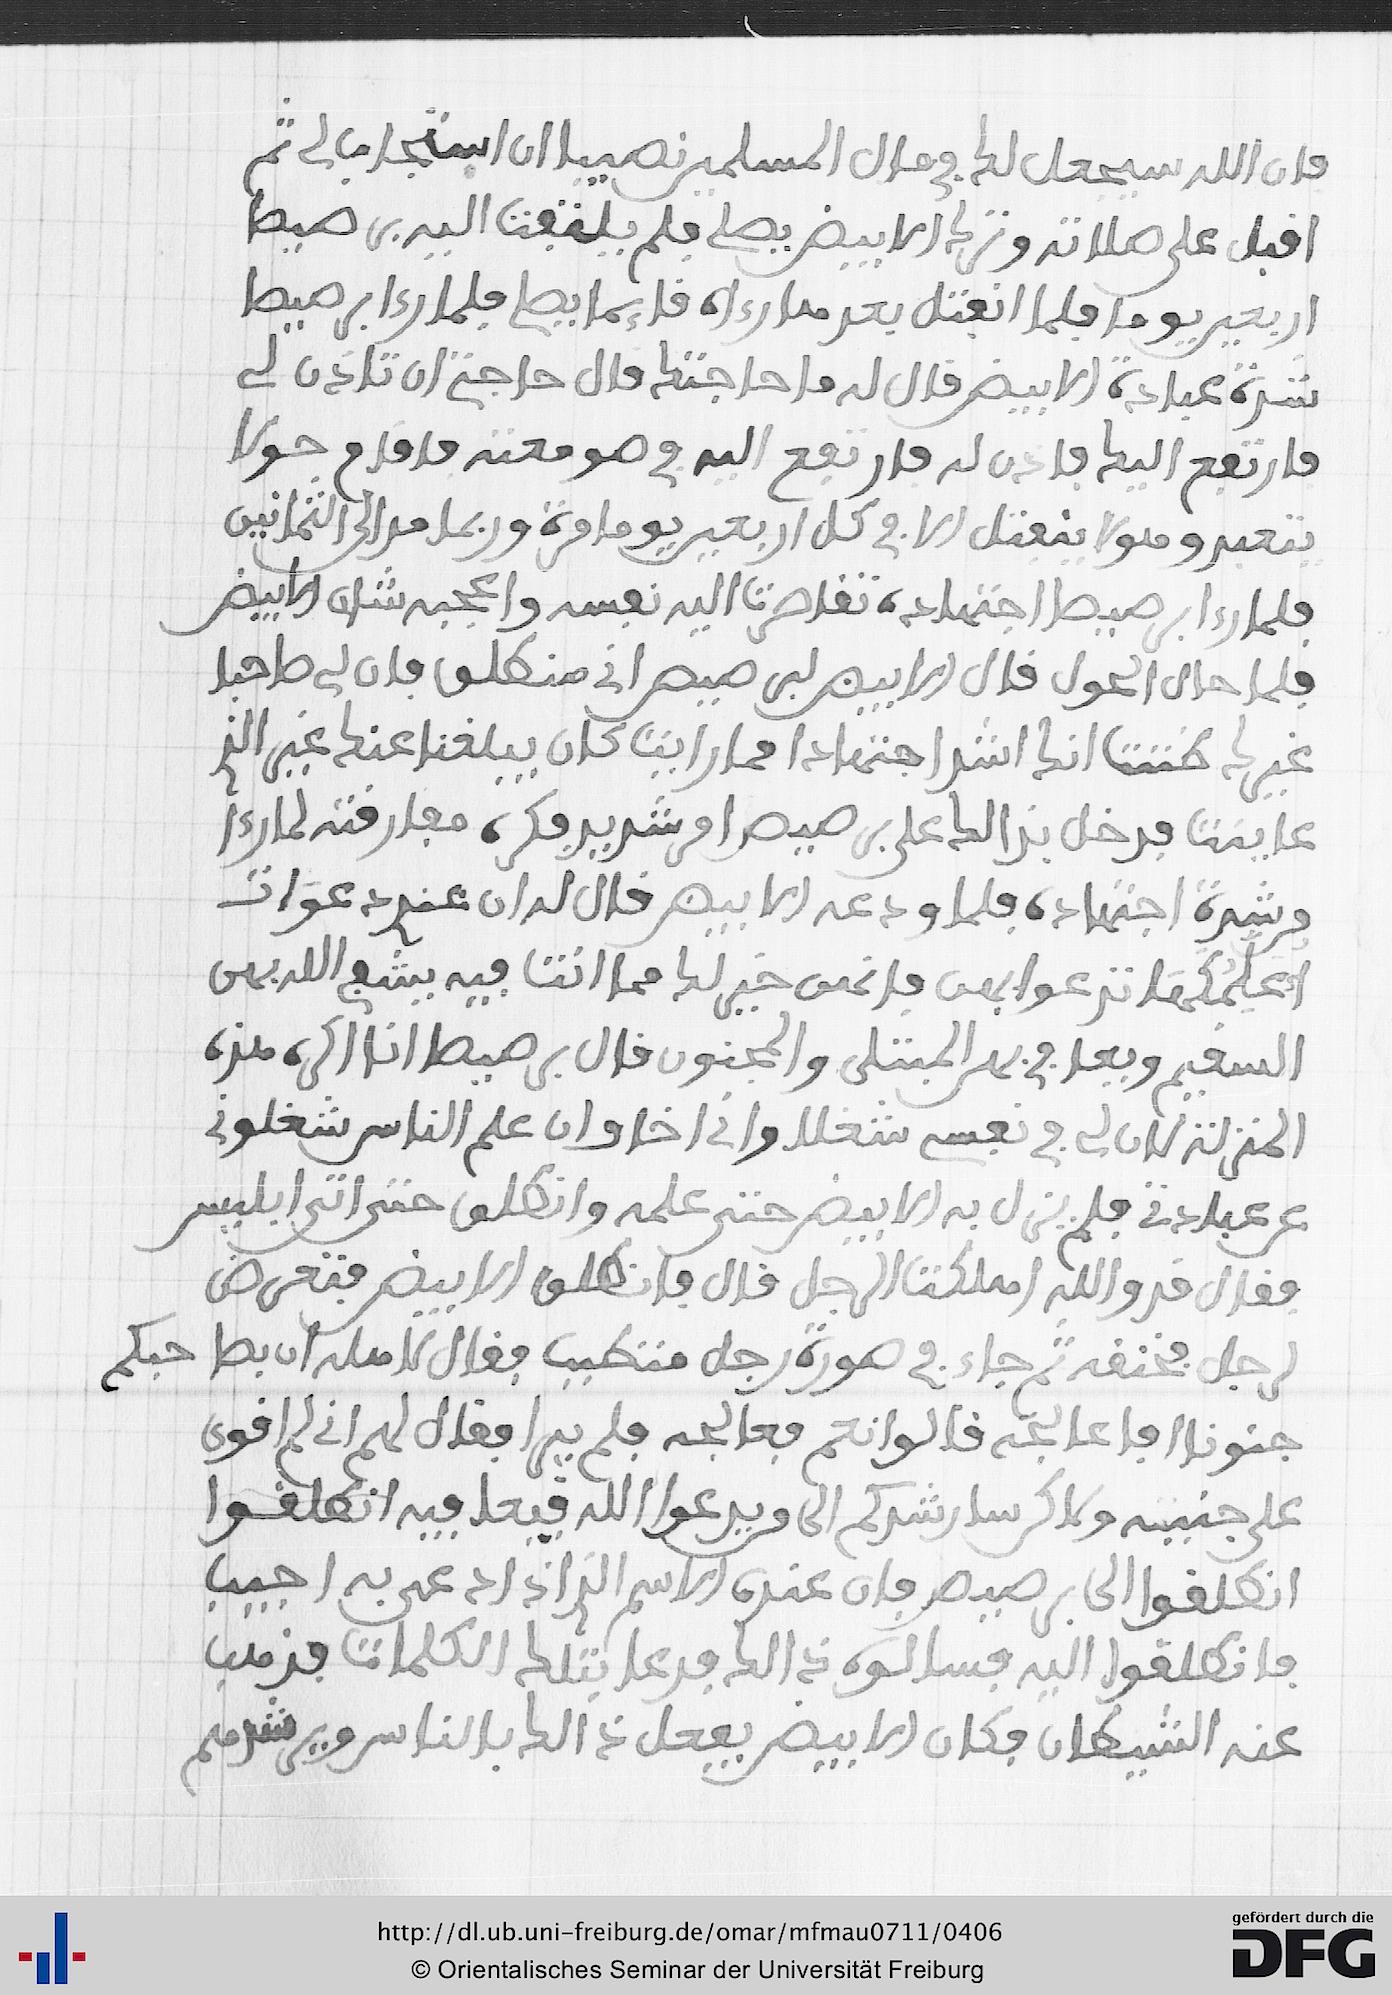 فان الله سيجعل لك في مال المسلمين نصيبا ان استجاب لي ثم
اقبل على صلاته وترك الابيض يصلي فلم يلتفت اليه برصيصا
اربعين يوما فلما انفتل بعدها رءاه قايما يصلي فلما رءا برصيصا
شدة عبادة الابيض قال له ما حاجتك قال حاجتي ان تاذن لي
فارتفع اليك فاذن له فارتفع اليه في صومعته فاقام حولا
يتعبد وهولا ينفتل الا في كل اربعين يوما مرة وربما مد الى الثمانين
فلما رءا برصيصا اجتهاده تقاصرت اليه نفسه واعجبه شان الابيض
فلما حال الحول قال الابيض لبرصيص اني منطلق فان لي صاحبا
غيرك ظننت انك اشد اجتهادا مما رايت كان يبلغنا عنك غير الذي
عاينت فدخل بذالك على برصيص امر شديد فكره مفارقته لما رءا
من شدة اجتهاده فلما ودعه الابيض قال له ان عندي دعوات
اعلمكها تدعوا بهن فانهن خير لك مما انت فيه يشفي الله بهن
السقيم ويعافي بهن المبتلى والمجنون قال برصيصا انا اكره هذه
المنزلة لان لي في نفسي شغلا واني اخاف ان علم الناس شغلوني
عن عبادتي فلم يزل به الابيض حتى علمه وانطلق حتى اتى ابليس
فقال قد والله اهلكت الرجل قال فانطلق الابيض فتعرض
لرجل فخنقه ثم جاء في صورة رجل متطبب فقال لاهله ان بصاحبكم
جنونا افاعالجه قالوا نعم فعالجه فلم يبرا فقال لهم اني لم اقوى
على جنيته ولاكن سارشدكم الى من يدعوا الله فيعافيه انطلقوا
انطلقوا الى برصيص فان عنده الاسم الذي اذا دعي به اجيب
فانطلقوا اليه فسالوه ذالك فدعا بتلك الكلمات فذهب
عنه الشيطان فكان الابيض يفعل ذالك بالناس ويرشدهم
http://dl.ub.uni-freiburg.de/omar/mfmau0711/0406
© Orientalisches Seminar der Universität Freiburg
gefördert durch die
DFG